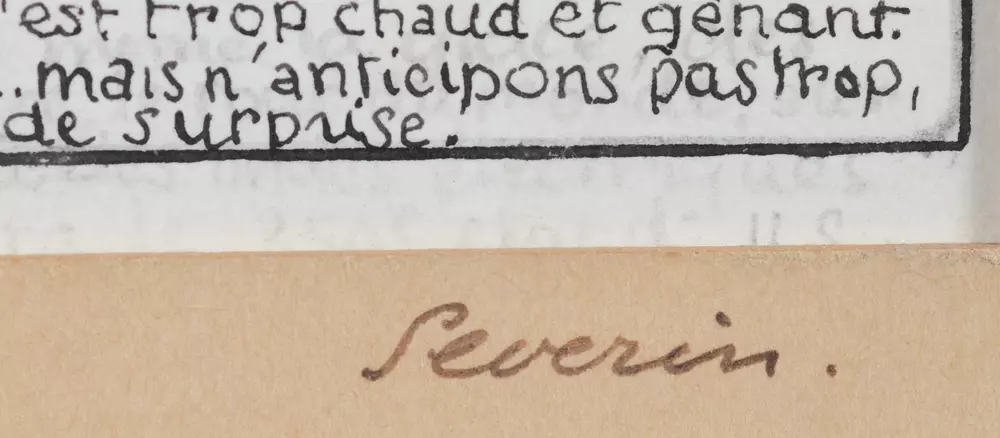 'est trop chaud et gênant.
..mais n'anticipons pas trop,
de surprise.
Severin.